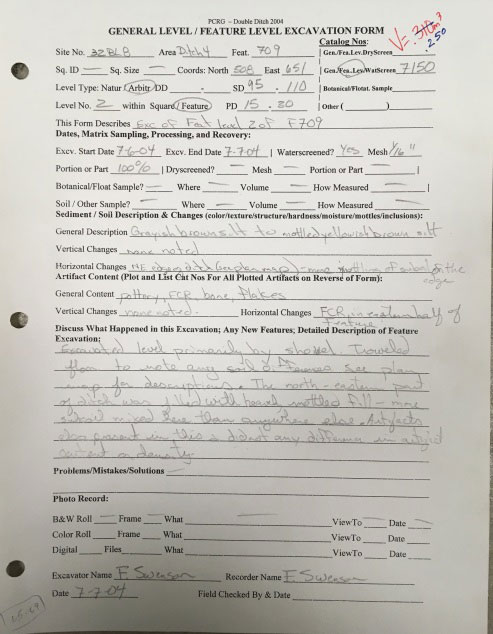 PCRG ~ Double Ditch 2004
GENERAL LEVEL / FEATURE LEVEL EXCAVATION FORM
V= .250 m³
Catalog Nos:
Site No. 32BL8 Area Ditch 4 Feat. 709 Gen./Fea.Lev.DryScreen
Sq. ID — Sq. Size — Coords: North 508 East 651 | Gen./Fea.Lev/WatScreen 7150
Level Type: Natur / Arbitr / DD - SD 95 - 110 Botanical/Flotat. Sample
Level No. 2 within Square / Feature PD 15 - 30 Other ( )
This Form Describes Exc of Feat level 2 of F709
Dates, Matrix Sampling, Processing, and Recovery:
Excv. Start Date 7-6-04 Excv. End Date 7-7-04 | Waterscreened? Yes Mesh 1/16"
Portion or Part 100% | Dryscreened? — Mesh — Portion or Part — |
Botanical/Float Sample? — Where — Volume — How Measured — |
Soil / Other Sample? — Where — Volume — How Measured —
Sediment / Soil Description & Changes (color/texture/structure/hardness/moisture/mottles/inclusions):
General Description Grayish brown silt to mottled yellowish brown silt
Vertical Changes none noted
Horizontal Changes NE edge of ditch (see plan map) - more mottling of subsoil on the edge
Artifact Content (Plot and List Cat Nos For All Plotted Artifacts on Reverse of Form):
General Content pottery, FCR, bone, flakes
Vertical Changes none noted. Horizontal Changes FCR in eastern half of feature
Discuss What Happened in this Excavation; Any New Features; Detailed Description of Feature
Excavation:
Excavated level primarily by shovel. Troweled
floor to note any soil differences see plan
map for descriptions. The north-eastern part
of ditch was filled with heavily mottled fill - more
subsoil mixed here than anywhere else. Artifacts
also present in this & did not any difference in artifact
content or density
Problems/Mistakes/Solutions —
Photo Record:
B&W Roll — Frame What — ViewTo Date —
Color Roll Frame What ViewTo Date
Digital Files What ViewTo Date
Excavator Name F. Swenson Recorder Name F. Swenson
Date 7-7-04 Field Checked By & Date